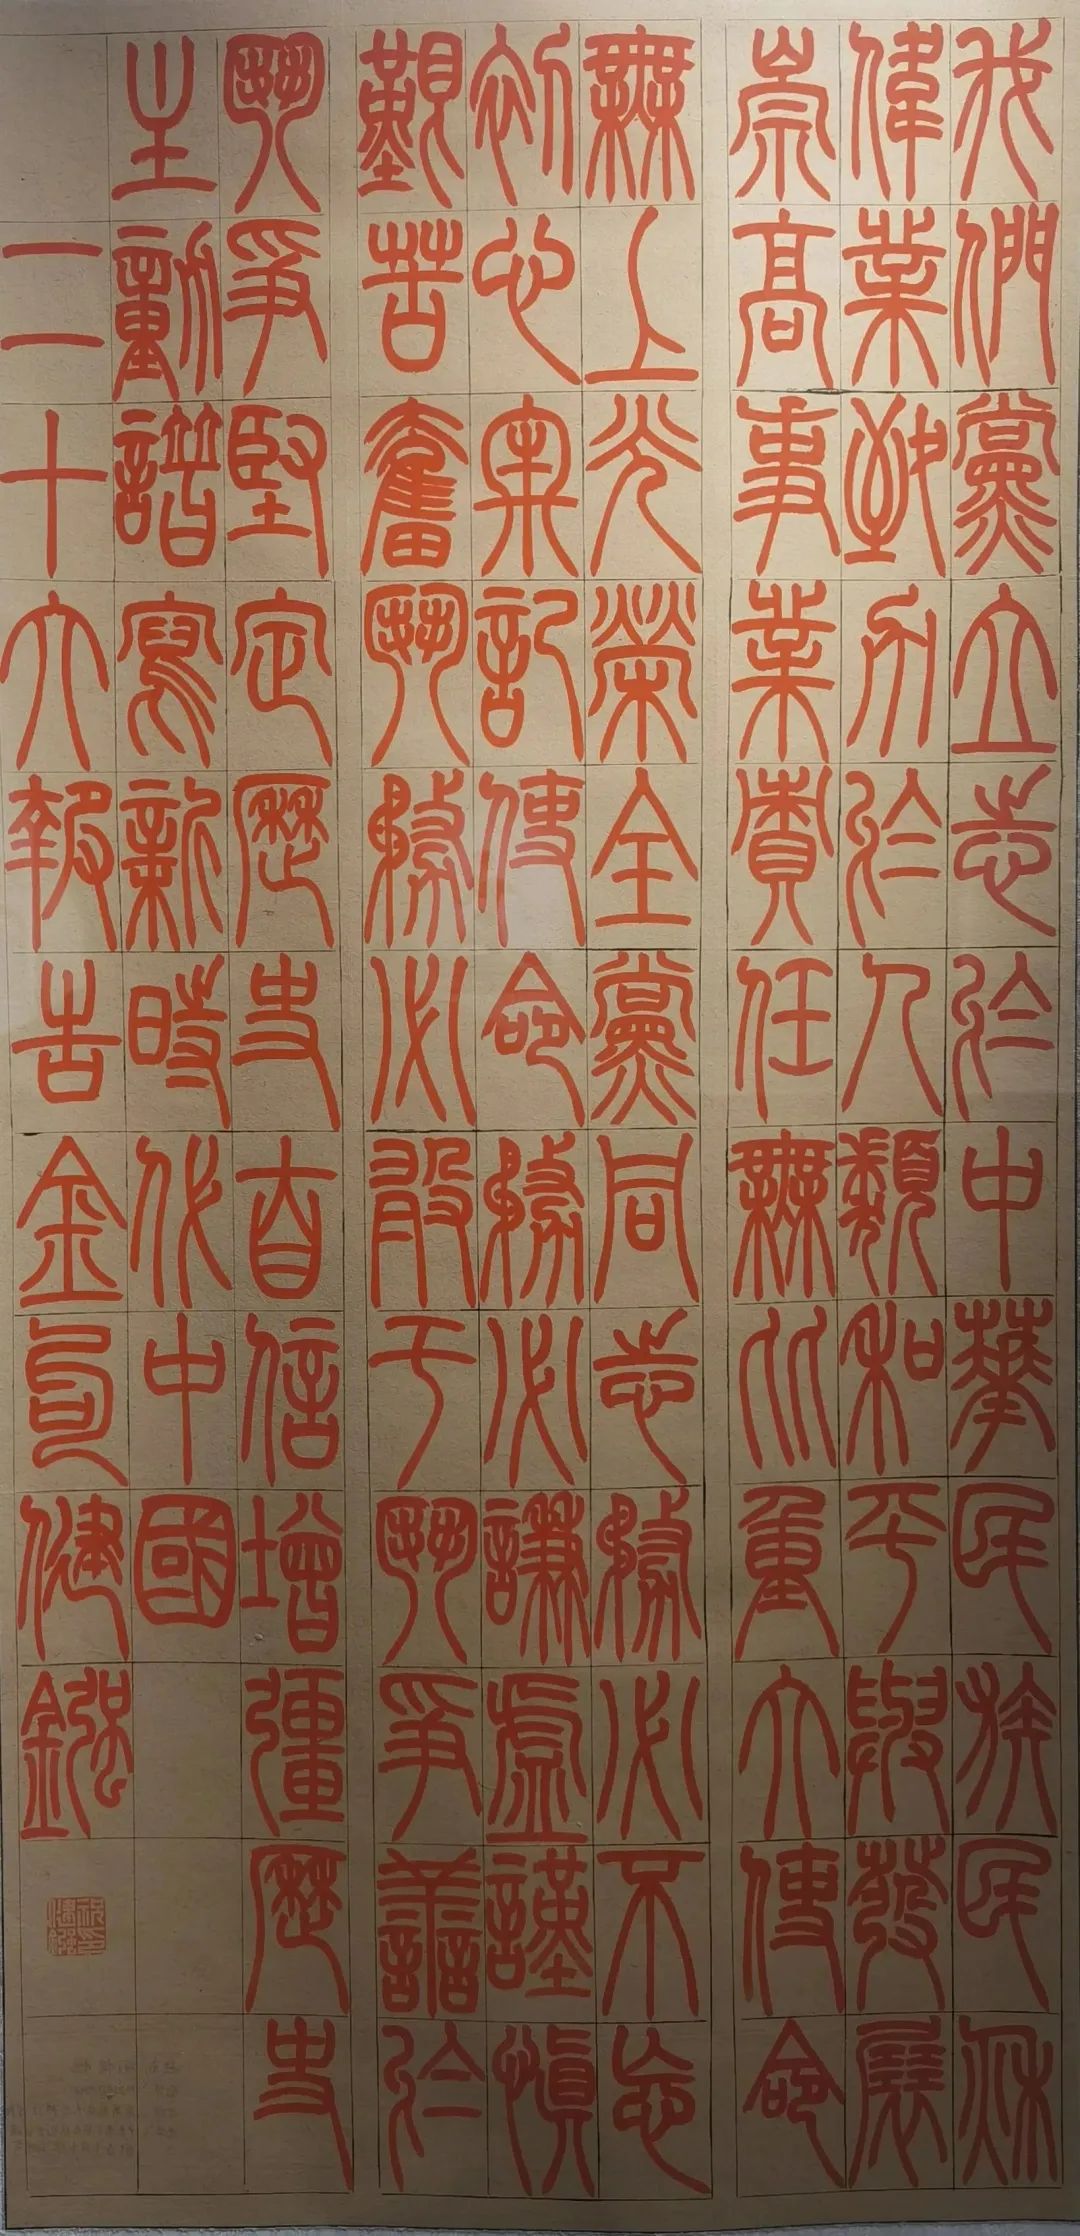 我們黨立志於中華民族千秋
偉業致力於人類和平與發展
崇高事業責任無比重大使命
無上光榮全黨同志務必不忘
初心牢記使命務必謙虛謹慎
艱苦奮鬥務必敢于鬥爭善於
鬥爭堅定歷史自信增彊歷史
主動譜寫新時代中國
二十大報告金句健鏹